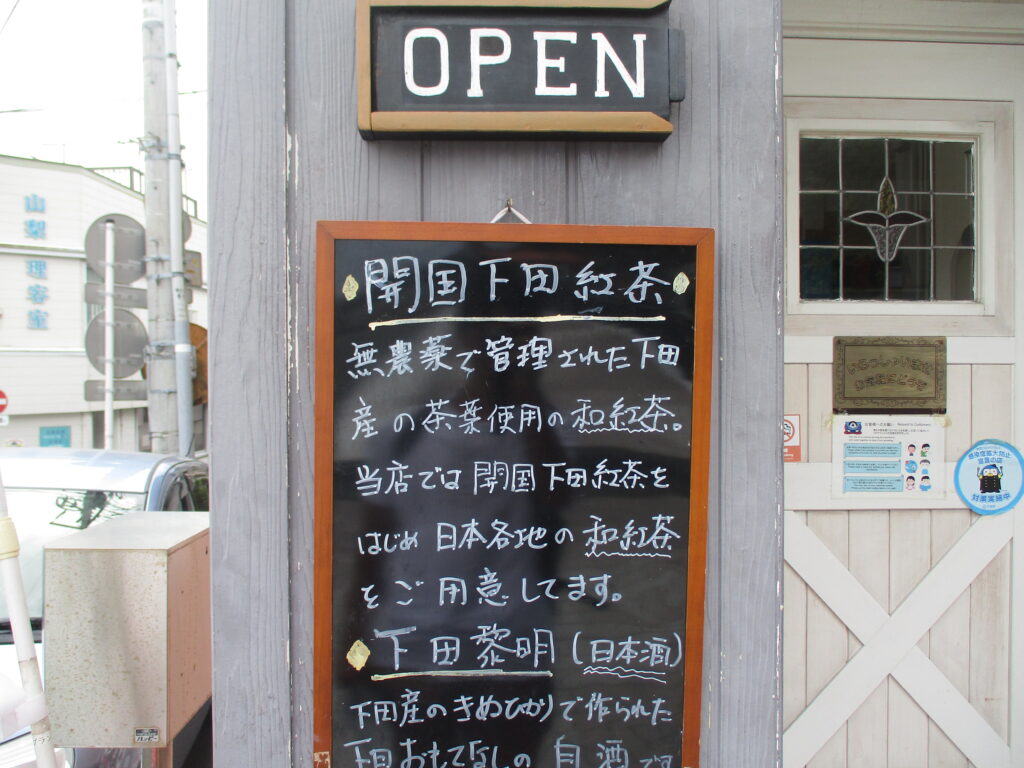 OPEN
開国下田紅茶
無農薬で管理された下田
産の茶葉使用の和紅茶。
当店では開国下田紅茶を
はじめ日本各地の和紅茶
をご用意してます。
下田黎明(日本酒)
下田産のきぬひかりで作られた
下田おもてなしの自酒です
山梨理容室
感染症拡大防止
宣言の店
対策実施中